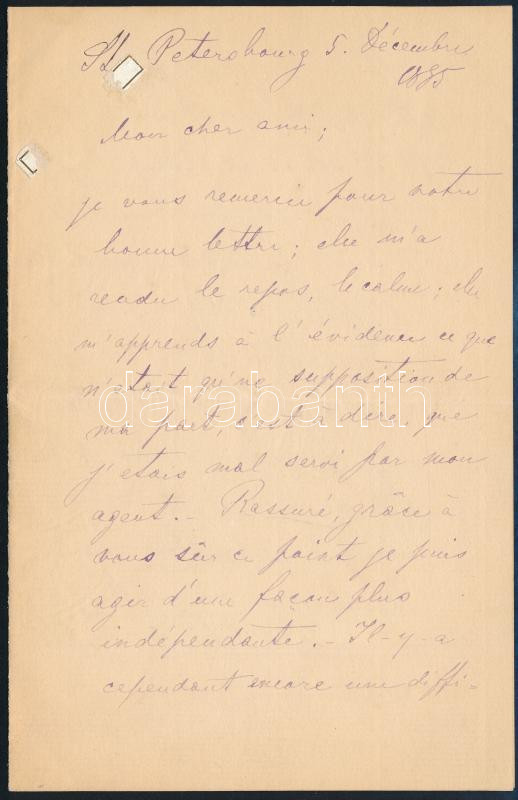 St. Petersbourg 5. Décembre
1885
Mon cher ami;
je vous remercie pour votre
bonne lettre; elle m'a
rendu le repos, le calme; elle
m'apprends à l'évidence ce que
n'était qu'une supposition de
ma part, c'est à dire, que
darabanth
j'etais mal servi par mon
agent. – Rassuré, grâce à
vous sûr ce point je puis
agir d'une façon plus
indépendante. – Il-y-a
cependant encore une diffi=